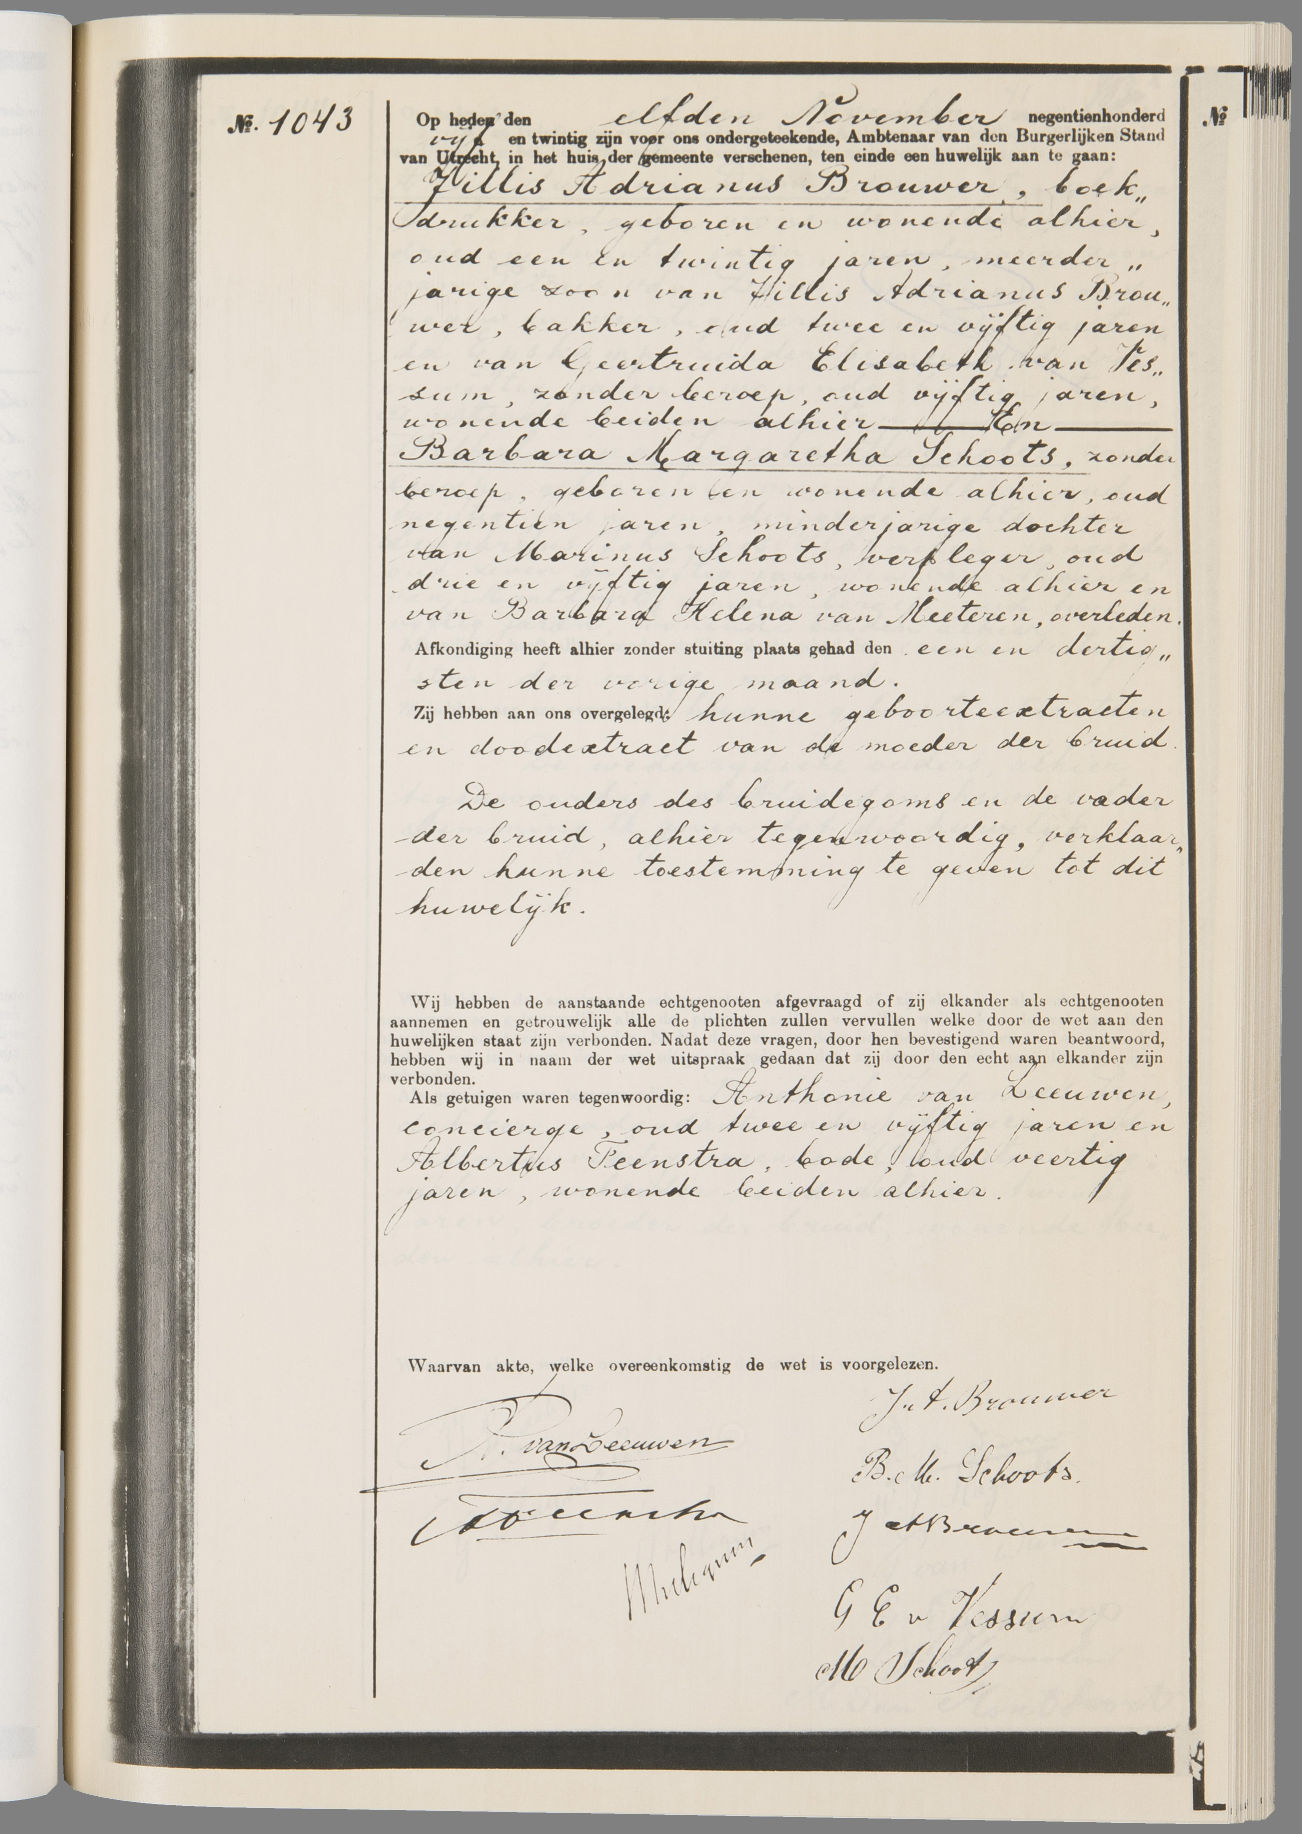 №. 1043
Op heden den elfden November negentienhonderd
vijf en twintig zijn voor ons ondergeteekende, Ambtenaar van den Burgerlijken Stand
van Utrecht, in het huis der gemeente verschenen, ten einde een huwelijk aan te gaan:
Jillis Adrianus Brouwer, boek„
drukker, geboren en wonende alhier,
oud een en twintig jaren, meerder„
jarige zoon van Jillis Adrianus Brou„
wer, bakker, oud twee en vijftig jaren
en van Geertruida Elisabeth van Ves„
sum, zonder beroep, oud vijftig jaren,
wonende beiden alhier — En —
Barbara Margaretha Schoots, zonder
beroep, geboren en wonende alhier, oud
negentien jaren, minderjarige dochter
van Marinus Schoots, verpleger, oud
drie en vijftig jaren, wonende alhier en
van Barbara Helena van Meeteren, overleden.
Afkondiging heeft alhier zonder stuiting plaats gehad den een en dertig„
sten der vorige maand.
Zij hebben aan ons overgelegd: hunne geboorteextracten
en doodextract van de moeder der bruid.
De ouders des bruidegoms en de vader
der bruid, alhier tegenwoordig, verklaar„
den hunne toestemming te geven tot dit
huwelijk.
Wij hebben de aanstaande echtgenooten afgevraagd of zij elkander als echtgenooten
aannemen en getrouwelijk alle de plichten zullen vervullen welke door de wet aan den
huwelijken staat zijn verbonden. Nadat deze vragen, door hen bevestigend waren beantwoord,
hebben wij in naam der wet uitspraak gedaan dat zij door den echt aan elkander zijn
verbonden.
Als getuigen waren tegenwoordig: Anthonie van Leeuwen,
concierge, oud twee en vijftig jaren en
Albertus Feenstra, bode, oud veertig
jaren, wonende beiden alhier.
Waarvan akte, welke overeenkomstig de wet is voorgelezen.
J. A. Brouwer
A. van Leeuwen
B. M. Schoots.
A Feenstra
J A Brouwer
G E v Vessum
M Schoots
№